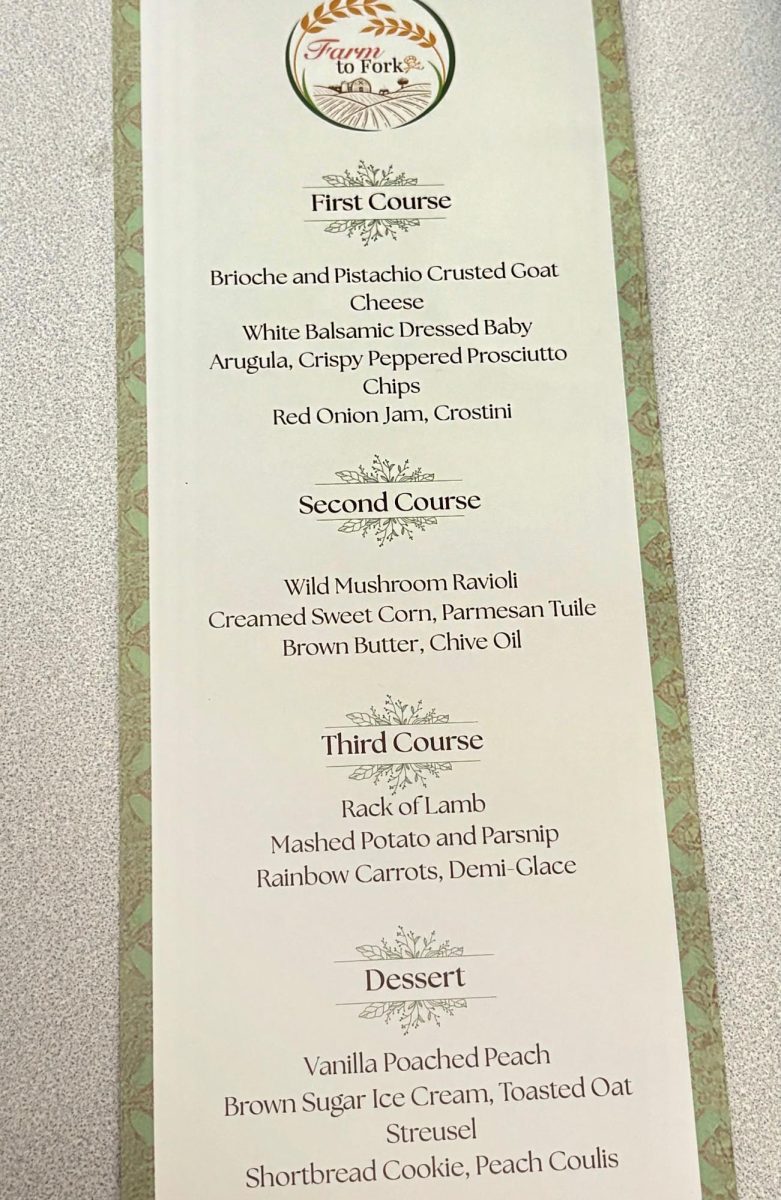 Farm
to Fork
First Course
Brioche and Pistachio Crusted Goat
Cheese
White Balsamic Dressed Baby
Arugula, Crispy Peppered Prosciutto
Chips
Red Onion Jam, Crostini
Second Course
Wild Mushroom Ravioli
Creamed Sweet Corn, Parmesan Tuile
Brown Butter, Chive Oil
Third Course
Rack of Lamb
Mashed Potato and Parsnip
Rainbow Carrots, Demi-Glace
Dessert
Vanilla Poached Peach
Brown Sugar Ice Cream, Toasted Oat
Streusel
Shortbread Cookie, Peach Coulis